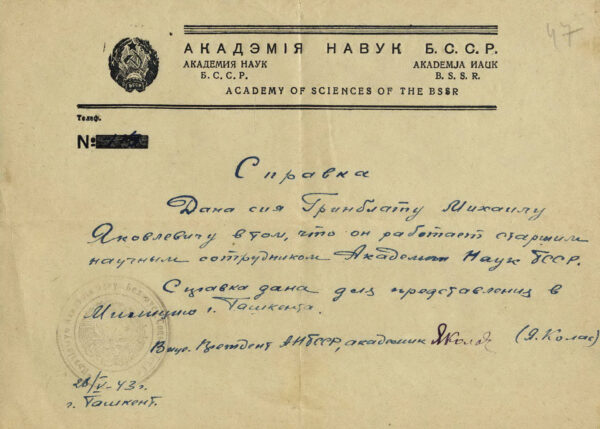 47
АКАДЭМІЯ НАВУК Б.С.С.Р.
АКАДЕМИЯ НАУК
Б.С.С.Р.
AKADEMJA NAUK
B.S.S.R.
ACADEMY OF SCIENCES OF THE BSSR
Телеф.
№
Справка
Дана сия Гринблату Михаилу
Яковлевичу в том, что он работает старшим
научным сотрудником Академии Наук БССР.
Справка дана для представления в
Милицию г. Ташкента.
Вице-Президент АНБССР, академик ЯКолас (Я. Колас)
43 г.
г. Ташкент.